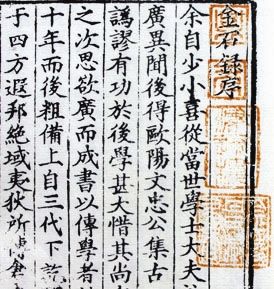 金石錄序
余自少小喜從當世學士大夫
廣異聞後得歐陽文忠公集古
譌謬有功於後學甚大惜其尚
之次思欲廣而成書以傳學者
十年而後粗備上自三代下
于四方遐邦絕域夷狄所傳倉